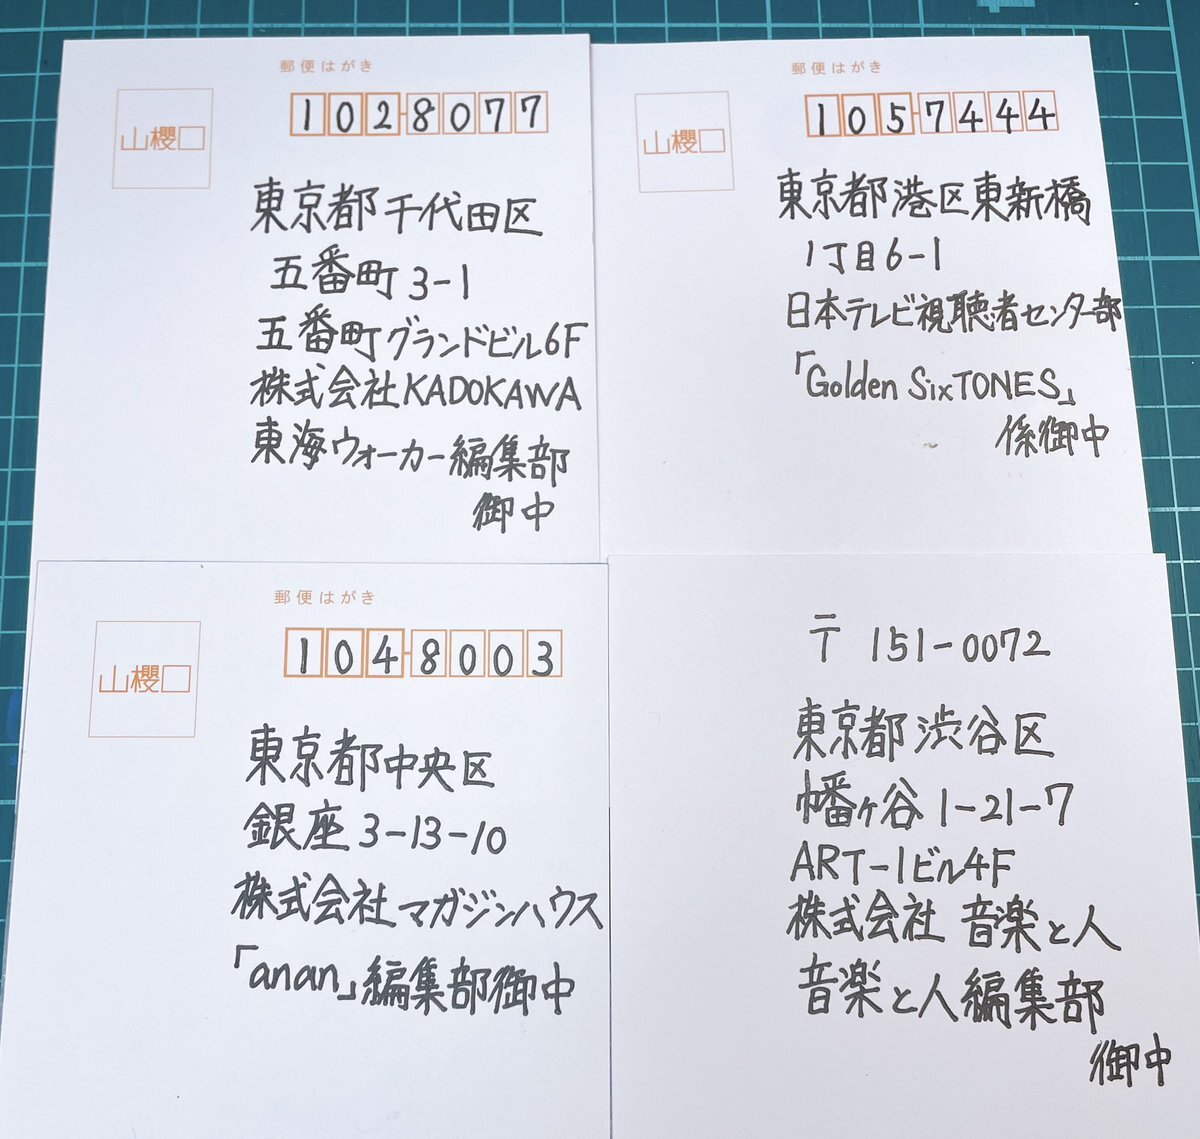 郵便はがき
山櫻
1028077
東京都千代田区
五番町3-1
五番町グランドビル6F
株式会社KADOKAWA
東海ウォーカー編集部
御中
郵便はがき
山櫻
1057444
東京都港区東新橋
1丁目6-1
日本テレビ視聴者センター部
「Golden SixTONES」
係御中
郵便はがき
山櫻
1048003
東京都中央区
銀座3-13-10
株式会社マガジンハウス
「anan」編集部御中
〒151-0072
東京都渋谷区
幡ヶ谷1-21-7
ART-1ビル4F
株式会社 音楽と人
音楽と人編集部
御中